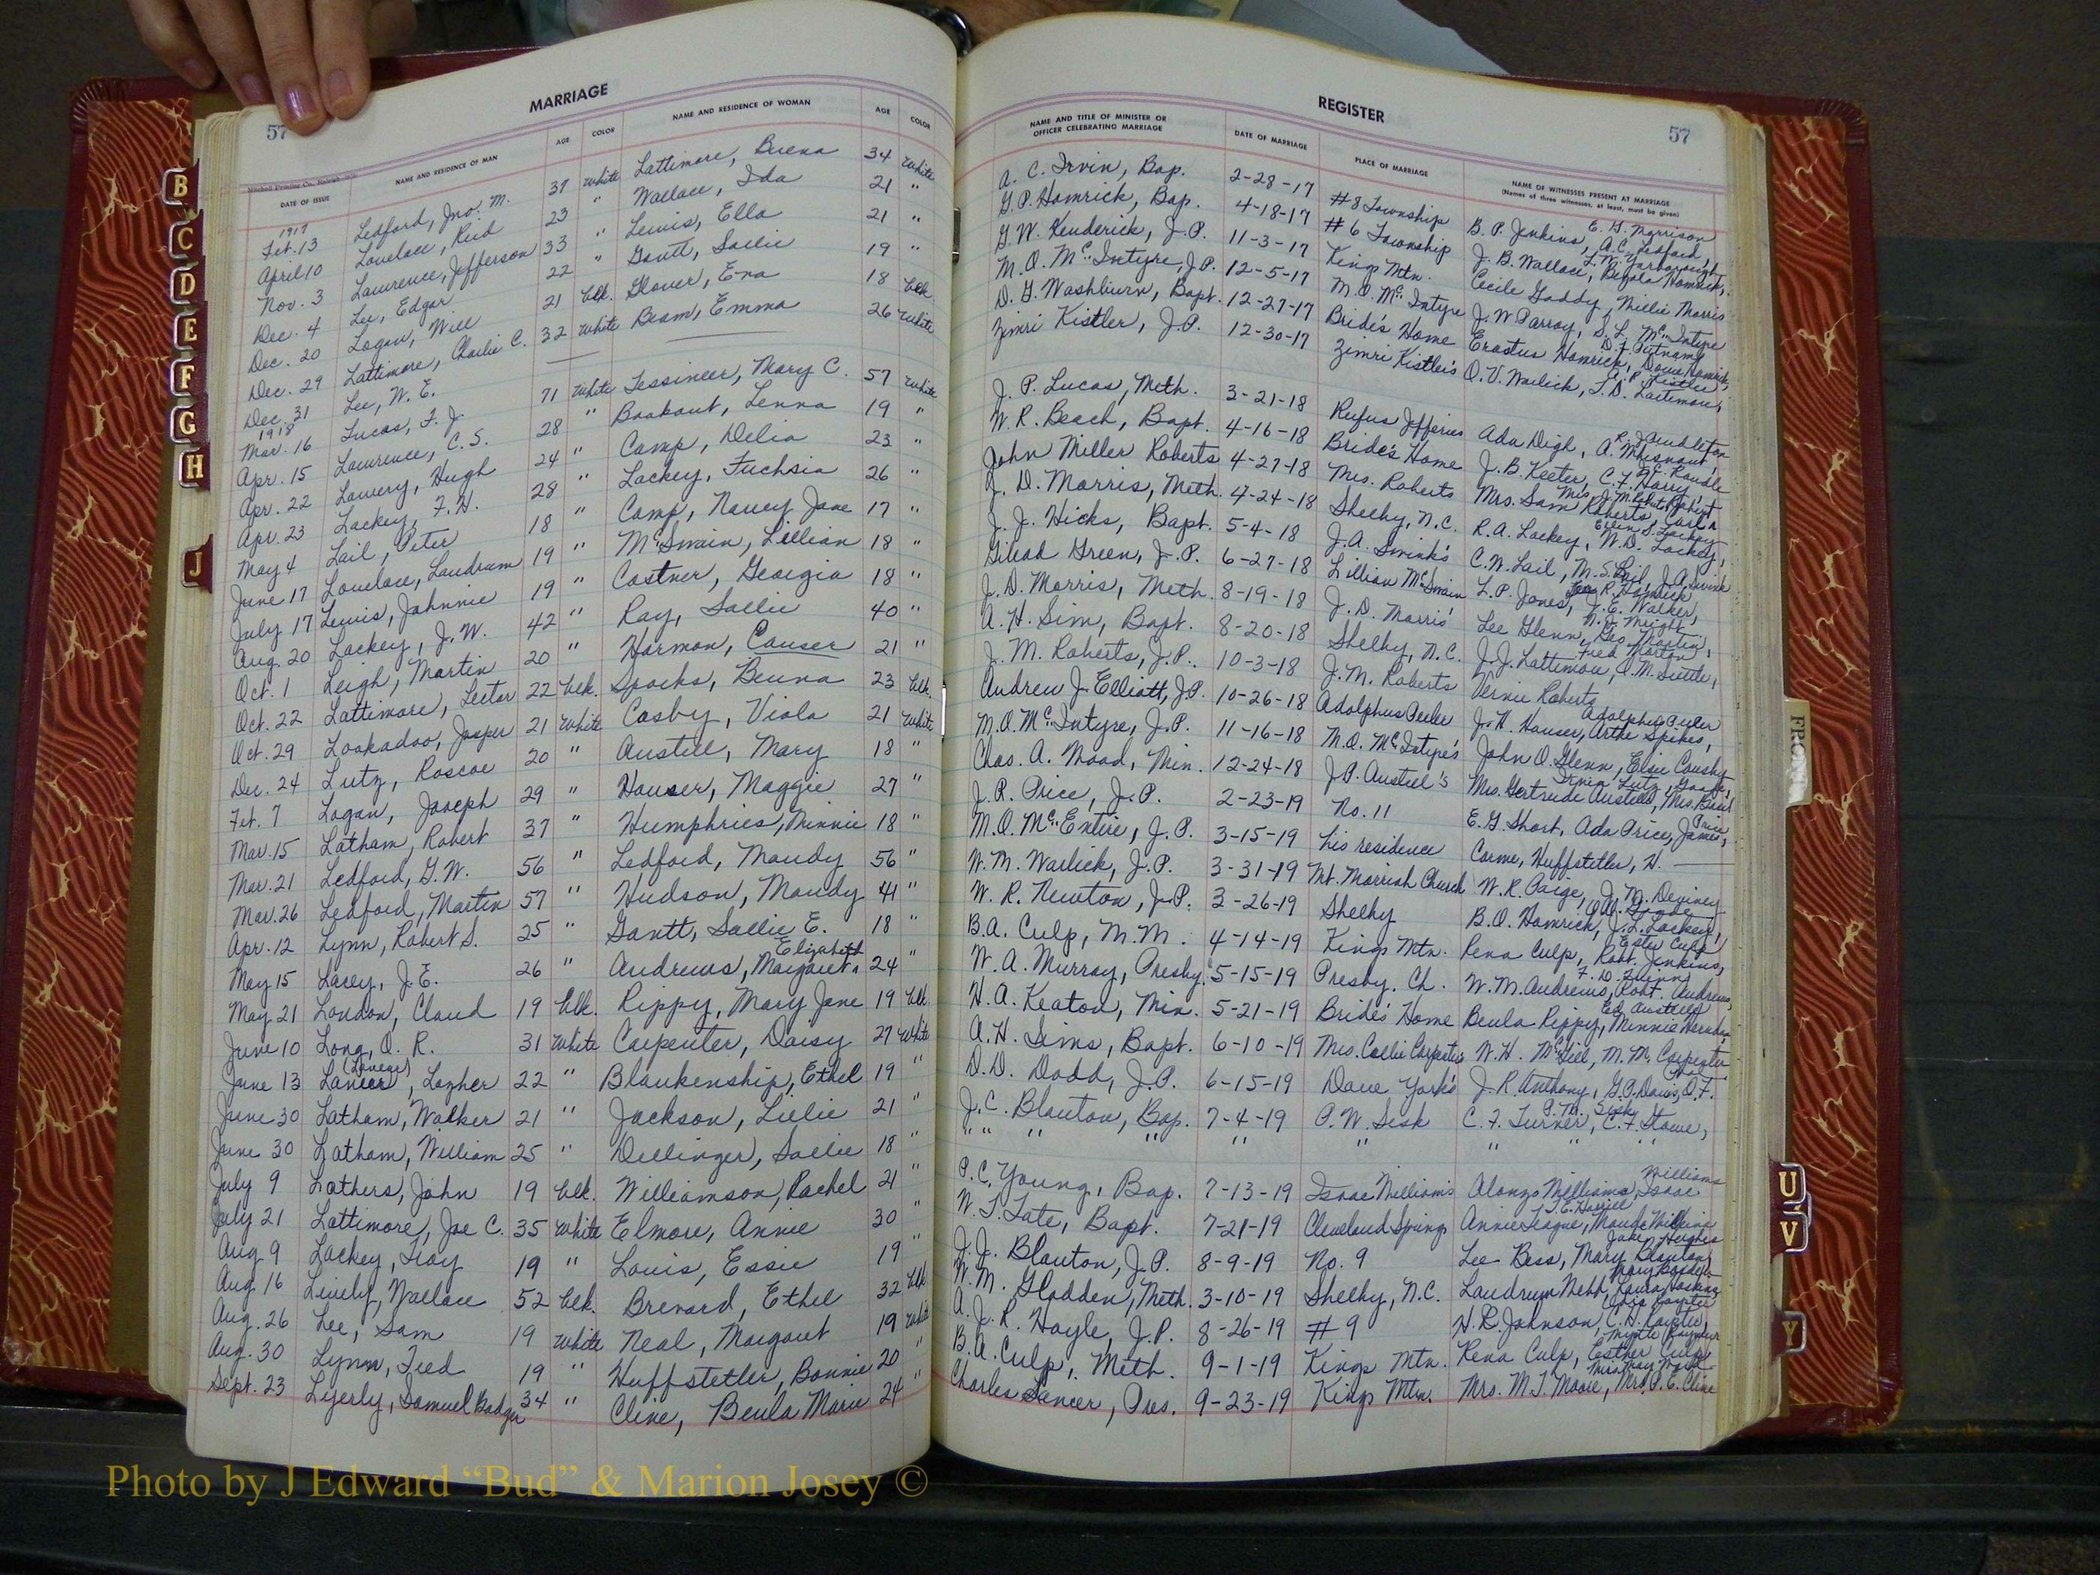 MARRIAGE
57
NAME AND RESIDENCE OF WOMAN
AGE
COLOR
NAME AND RESIDENCE OF MAN
AGE
COLOR
DATE OF ISSUE
1917
Feb. 13 Ledford, Jno. M. 37 White Lattimore, Buena 34 White
April 10 Lovelace, Reid 23 " Wallace, Ida 21 "
Nov. 3 Lawrence, Jefferson 33 " Lewis, Ella 21 "
Dec. 4 Lee, Edgar 22 " Gantt, Sallie 19 "
Dec. 20 Logan, Will 21 Clk. Glover, Era 18 Clk
Dec. 29 Lattimore, Charlie C. 32 White Beam, Emma 26 White
Dec. 31 Lee, W. E.
1918
Mar. 16 Lucas, F. J. 71 White Tessineer, Mary C. 57 White
Apr. 15 Lawrence, C. S. 28 " Bookout, Lenna 19 "
Apr. 22 Lowery, Hugh 24 " Camp, Delia 23 "
Apr. 23 Lackey, F. H. 28 " Lackey, Fuchsia 26 "
May 4 Lail, Peter 18 " Camp, Nancy Jane 17 "
June 17 Lovelace, Landrum 19 " McSwain, Lillian 18 "
July 17 Lewis, Johnnie 19 " Costner, Georgia 18 "
Aug. 20 Lackey, J. W. 42 " Ray, Sallie 40 "
Oct. 1 Leigh, Martin 20 " Harmon, Causer 21 "
Oct. 22 Lattimore, Lester 22 Clk. Sparks, Beuna 23 Clk.
Oct. 29 Lookadoo, Jasper 21 White Cosby, Viola 21 White
Dec. 24 Lutz, Roscoe 20 " Austell, Mary 18 "
Feb. 7 Logan, Joseph 29 " Houser, Maggie 27 "
Mar. 15 Latham, Robert 37 " Humphries, Minnie 18 "
Mar. 21 Ledford, G. W. 56 " Ledford, Mandy 56 "
Mar. 26 Ledford, Martin 57 " Hudson, Mandy 41 "
Apr. 12 Lynn, Robert S. 25 " Gantt, Sallie E. 18 "
May 15 Lacey, J. E. 26 " Andrews, Margaret Elizabeth 24 "
May 21 London, Claud 19 Clk. Rippy, Mary Jane 19 Clk.
June 10 Long, O. R. 31 White Carpenter, Daisy 27 White
June 13 Lanier, Lazher 22 " Blankenship, Ethel 19 "
June 30 Latham, Walker 21 " Jackson, Lillie 21 "
June 30 Latham, William 25 " Dellinger, Sallie 18 "
July 9 Lathers, John 19 Clk. Williamson, Rachel 21 "
July 21 Lattimore, Joe C. 35 White Elmore, Annie 30 "
Aug. 9 Lackey, Troy 19 " Louis, Essie 19 "
Aug. 16 Lively, Wallace 52 Clk. Brevard, Ethel 32 Clk
Aug. 26 Lee, Sam 19 White Neal, Margaret 19 White
Aug. 30 Lynn, Fred 19 " Huffstetler, Bonnie 20 "
Sept. 23 Lyerly, Samuel Badger 34 " Cline, Beula Marie 24 "
REGISTER
57
NAME AND TITLE OF MINISTER OR
OFFICER CELEBRATING MARRIAGE
DATE OF MARRIAGE
PLACE OF MARRIAGE
NAME OF WITNESSES PRESENT AT MARRIAGE
(Names of three witnesses, at least, must be given)
A. C. Irvin, Bap. 2-28-17 #8 Township B. P. Jenkins, A. C. Ledford, E. G. Morrison
G. P. Hamrick, Bap. 4-18-17 #6 Township J. B. Wallace
G. W. Kenderick, J. P. 11-3-17 Kings Mtn. Cecile Gaddy, Millie Morris
M. O. McIntyre, J. P. 12-5-17 M. O. McIntyre J. W. Parroy, S. L. McIntyre
D. G. Washburn, Bapt. 12-27-17 Bride's Home Erastus Hamrick, D. F. Putnam
Zimri Kistler, J. P. 12-30-17 Zimri Kistler's O. V. Warlick, T. D. Lattimore
J. P. Lucas, Meth. 3-21-18 Rufus Jefferies Ada Digh, A. Whisnant
W. R. Beach, Bapt. 4-16-18 Bride's Home J. B. Keeter, C. F. Harry
John Miller Roberts 4-27-18 Mrs. Roberts Mrs. Sam Roberts
J. D. Morris, Meth. 4-24-18 Shelby, N.C. R. A. Lackey, W. D. Lackey
J. J. Hicks, Bapt. 5-4-18 J. A. Swink's C. W. Lail, M. S. Lail, J. A. Swink
Gilead Green, J. P. 6-27-18 Lillian McSwain L. P. Jones, J. E. Walker
J. D. Morris, Meth. 8-19-18 J. D. Morris' Lee Glenn, Geo. Martin
A. H. Sim, Bapt. 8-20-18 Shelby, N. C. J. J. Lattimore, A. M. Suttle
J. M. Roberts, J. P. 10-3-18 J. M. Roberts Vernie Roberts
Andrew J. Elliott, J.P. 10-26-18 Adolphus Peeler J. H. Houser, Arthe Spikes, Adolphus Peeler
M. O. McIntyre, J. P. 11-16-18 M. O. McIntyre's John O. Glenn, Elsie Cousby
Chas. A. Wood, Min. 12-24-18 J. P. Austell's Mrs. Gertrude Austell
J. R. Price, J. P. 2-23-19 No. 11 E. G. Short, Ada Price, James Price
M. O. McEntire, J. P. 3-15-19 his residence Carme, Huffstetler, H.
W. M. Warlick, J. P. 3-31-19 Mt. Morriah Church W. R. Paige, J. M. Deviney
W. R. Newton, J. P. 3-26-19 Shelby B. O. Hamrick, J. L. Lackey
B. A. Culp, M. M. 4-14-19 Kings Mtn. Rena Culp, Robt. Jenkins, Ester Culp
W. A. Murray, Presby. 5-15-19 Presby. Ch. W. M. Andrews, Robt. Andrews, F. D. Quinn
H. A. Keaton, Min. 5-21-19 Bride's Home Beula Rippy, Ed Austell
A. H. Sims, Bapt. 6-10-19 Mrs. Callie Carpenter W. H. McGill, M. M. Carpenter
D. D. Dodd, J. P. 6-15-19 Dave York's J. R. Anthony, G. P. Davis, O. F.
J. C. Blanton, Bap. 7-4-19 P. W. Sisk C. F. Turner, C. F. Stowe, P. M. Sisk
" " " " " " " "
P. C. Young, Bap. 7-13-19 Isaac Williams Alonzo Williams, Isaac Williams
W. T. Tate, Bapt. 7-21-19 Cleveland Springs Annie Teague, Maude Wilkins
J. J. Blanton, J. P. 8-9-19 No. 9 Lee Bess, Mary Blanton, Jake Hughes
W. M. Gladden, Meth. 3-10-19 Shelby, N.C. Landrum Webb, Laura Hoskins
A. J. R. Hoyle, J. P. 8-26-19 #9 H. R. Johnson
B. A. Culp, Meth. 9-1-19 Kings Mtn. Rena Culp, Esther Culp
Charles Lancer, Pres. 9-23-19 Kings Mtn. Mrs. M. T. Moore, Mrs. P. E. Cline
B
C
D
E
F
G
H
J
U
V
Y
Photo by J Edward “Bud” & Marion Josey ©